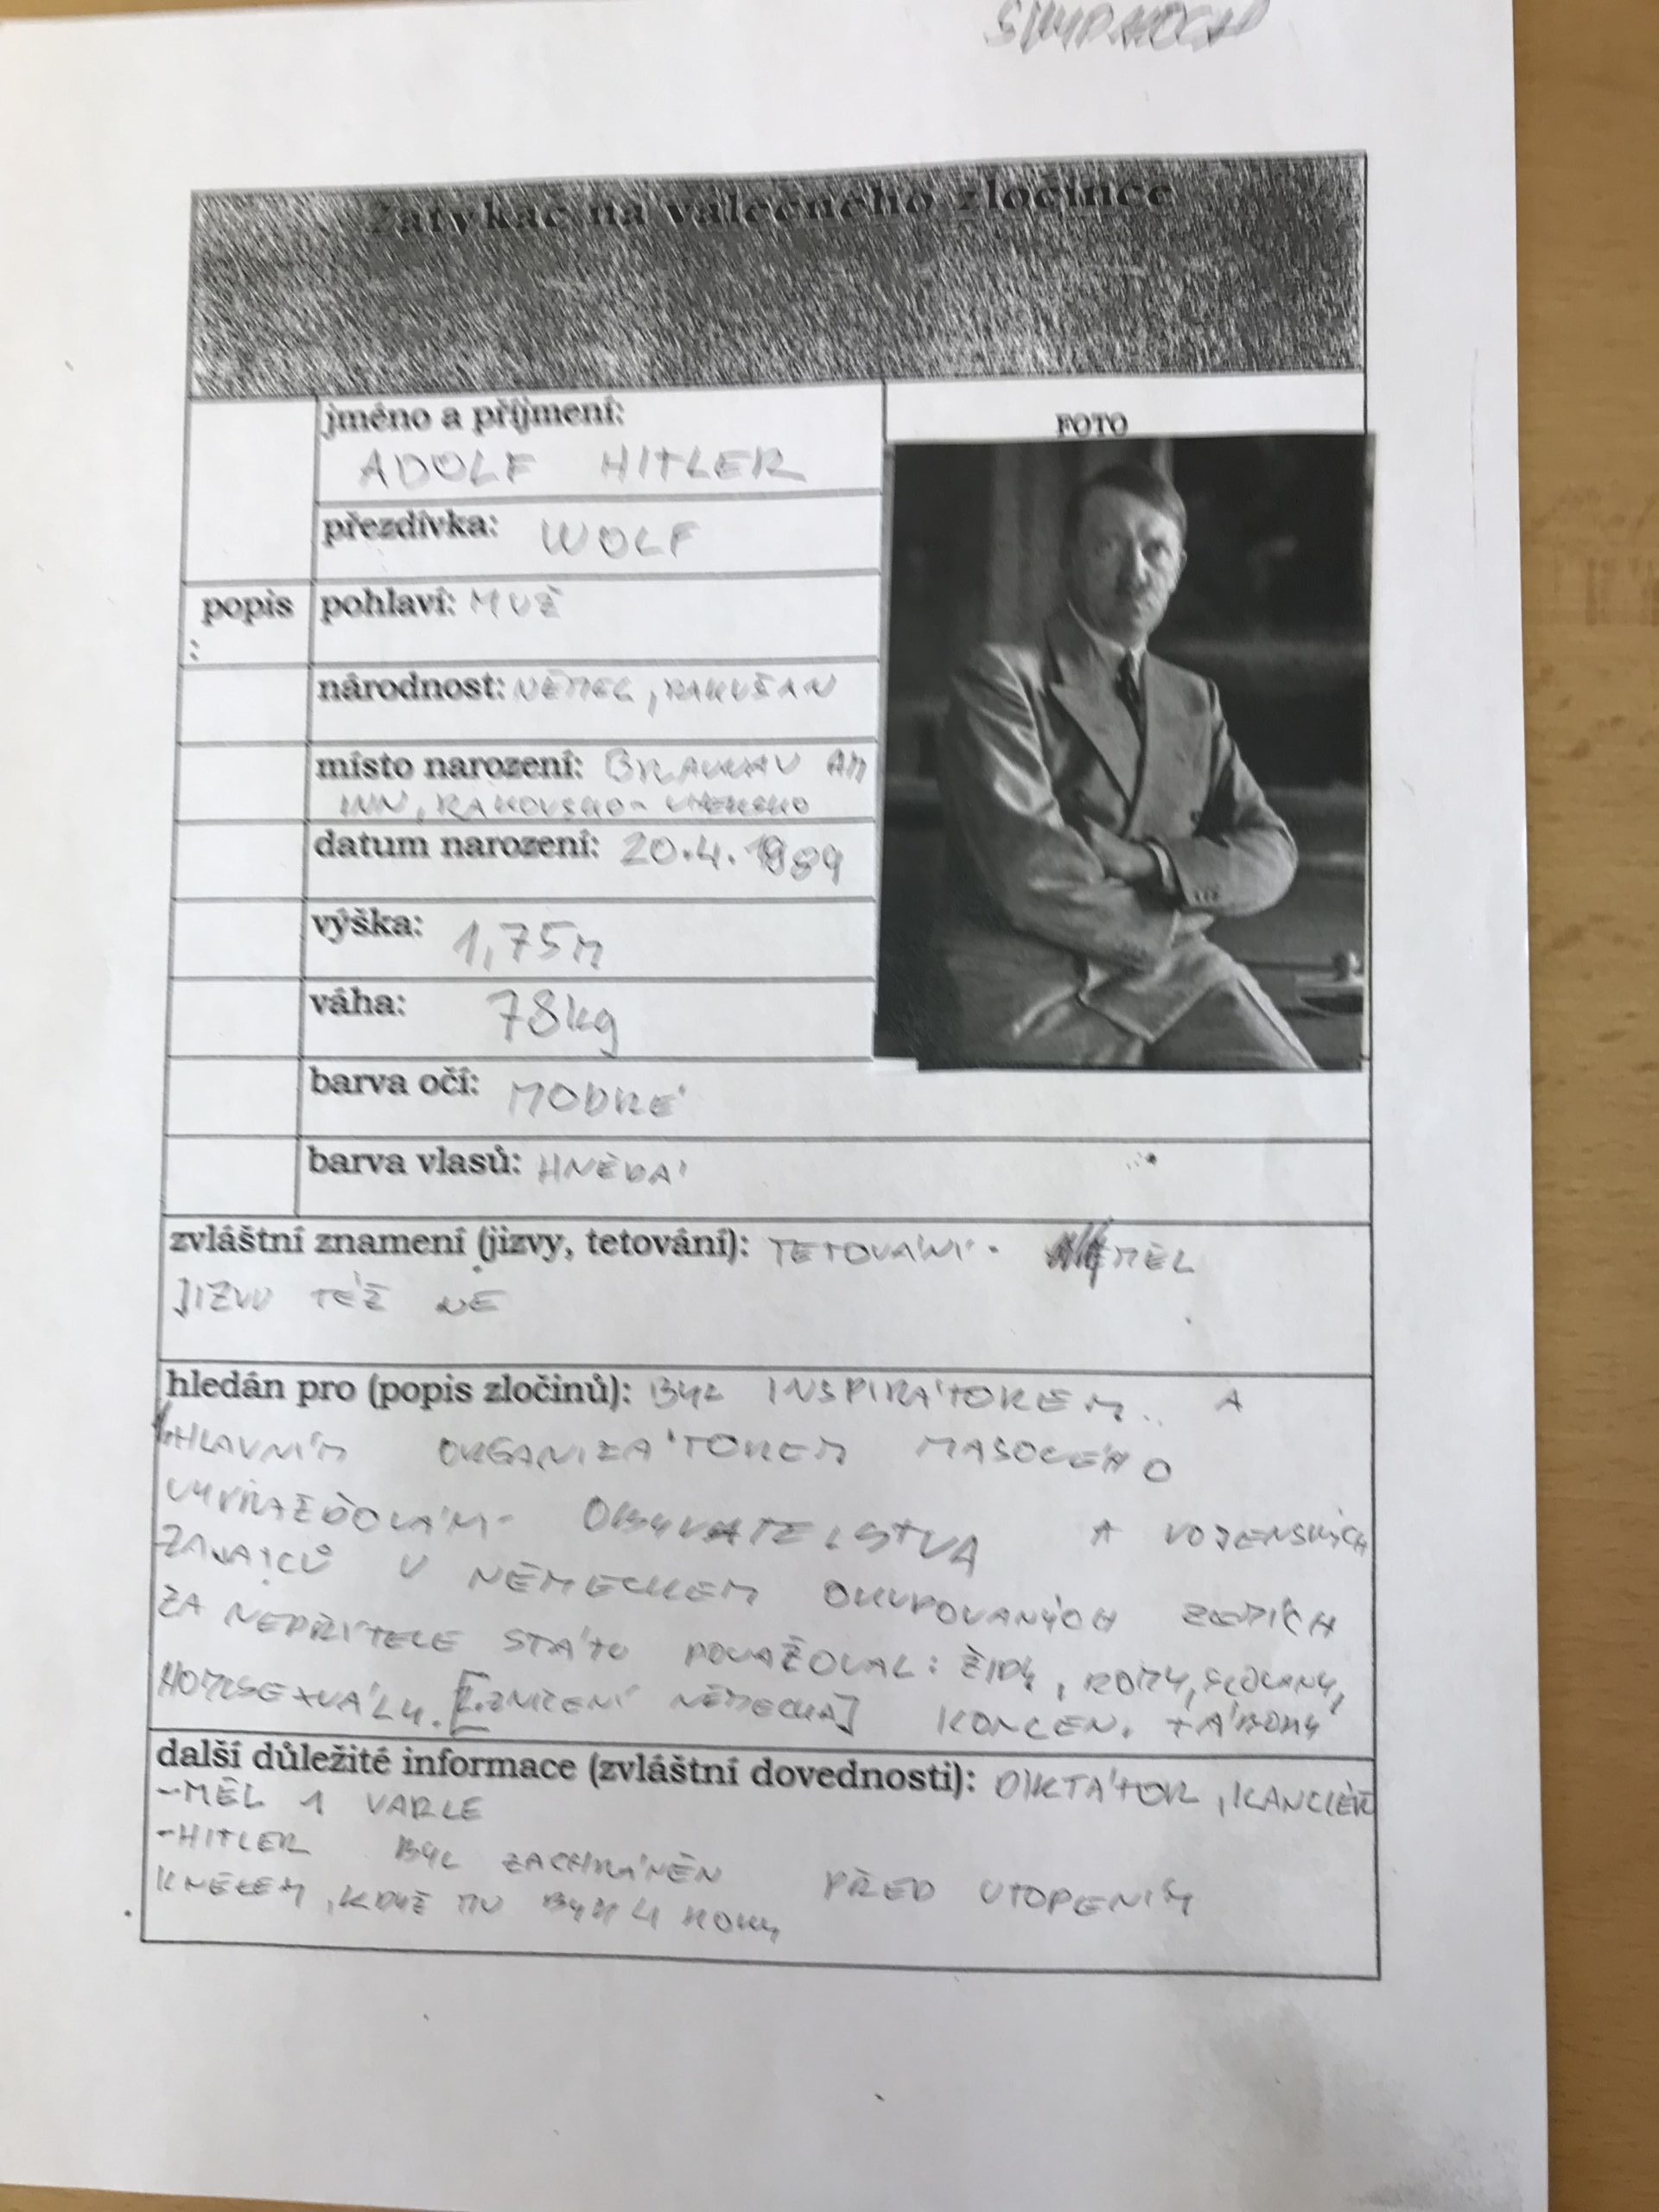 Zatykač na válečného zločince
jméno a příjmení:
ADOLF HITLER
FOTO
přezdívka: WOLF
popis
:
pohlaví: MUŽ
národnost: NĚMEC, RAKUŠAN
místo narození: BRAUNAU AM
INN, RAKOUSKO-UHERSKO
datum narození: 20.4.1889
výška: 1,75m
váha: 78kg
barva očí: MODRÉ
barva vlasů: HNĚDÁ
zvláštní znamení (jizvy, tetování): TETOVÁNÍ - MĚL
JIZVU TÉŽ NE
hledán pro (popis zločinů): BYL INSPIRÁTOREM A
HLAVNÍM ORGANIZÁTOREM MASOVÉHO
VYVRAŽĎOVÁNÍ OBYVATELSTVA A VOJENSKÝCH
ZAJATCŮ V NĚMECKEM OKUPOVANÝCH ZEMÍCH
ZA NEPŘÍTELE STÁTU POVAŽOVAL: ŽIDY, ROMY, SLOVANY,
HOMOSEXUÁLY. [ZNIČENÍ NĚMECKA] KONCEN. TÁBORY
další důležité informace (zvláštní dovednosti): DIKTÁTOR, KANCLÉŘ
-MĚL 1 VARLE
-HITLER BYL ZACHRÁNĚN PŘED UTOPENÍM
KNĚZEM, KDYŽ MU BYLY 4 ROKY